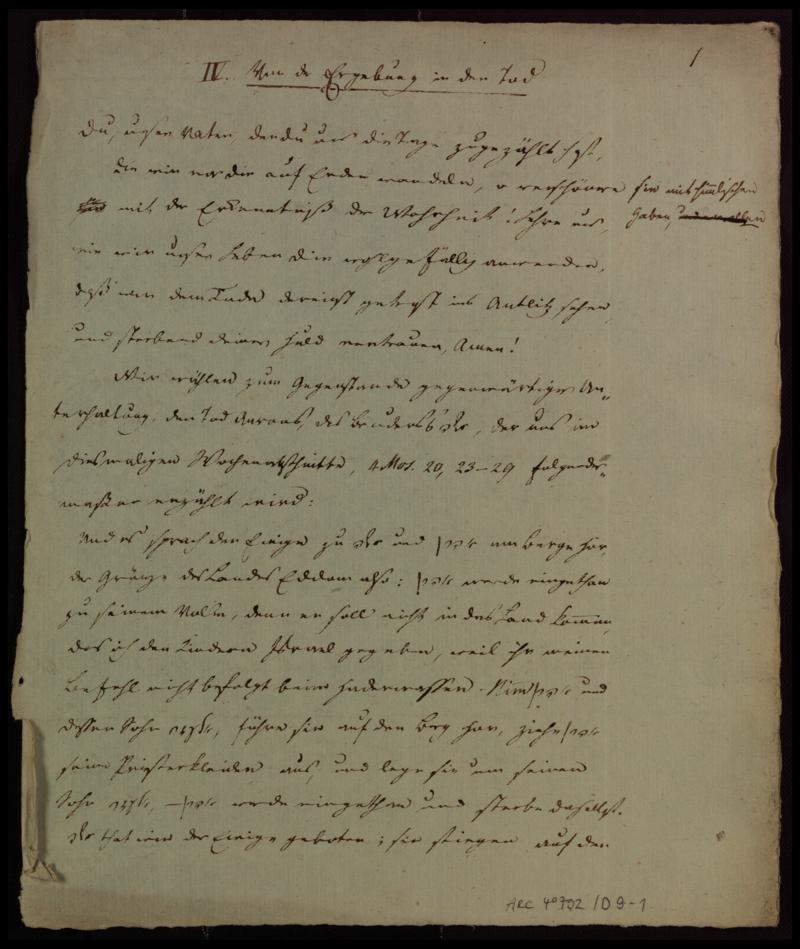 1
IV. Von der Ergebung in den Tod
Du, unser Vater, der du uns die Tage zugezählt hast,
die wir vor dir auf Erden wandeln, o verschönere sie mit himlischen
mit der Erkenntniß der Wahrheit! Lehre uns, Gaben,
wie wir unser Leben dir wolgefällig anwenden,
daß wir dem Tode dereinst getrost ins Antlitz sehen,
und sterbend deiner Huld vertrauen, Amen!
Wir wählen zum Gegenstande gegenwärtiger Un-
terhaltung, den Tod Aarons, des Bruders משה, der uns im
diesmaligen Wochenabschnitte, 4 Mos. 20, 23–29 folgender-
maßen erzählt wird:
Und es sprach der Ewige zu משה und אהרן am Berge Hor,
der Gränze des Landes Eddom also: אהרן werde eingethan
zu seinem Volke, denn er soll nicht in das Land kommen,
das ich den Kindern Israel gegeben, weil ihr meinen
Befehl nicht befolgt beim Haderwasser. Nim אהרן und
dessen Sohn אלעזר, führe sie auf den Berg Hor, ziehe אהרן
seine Priesterkleider aus, und lege sie um seinen
Sohn אלעזר, – אהרן werde eingethan und sterbe daselbst.
משה that wie der Ewige geboten; sie stiegen auf den
ARC 4° 792 / D 9-1